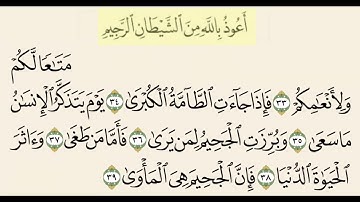 أَعُوذُ بِاللَّهِ مِنَ الشَّيْطَانِ الرَّجِيمِ
مَتَاعًا لَّكُمْ
وَلِأَنْعَامِكُمْ ٣٣ فَإِذَا جَاءَتِ الطَّامَّةُ الْكُبْرَىٰ ٣٤ يَوْمَ يَتَذَكَّرُ الْإِنسَانُ
مَا سَعَىٰ ٣٥ وَبُرِّزَتِ الْجَحِيمُ لِمَن يَرَىٰ ٣٦ فَأَمَّا مَن طَغَىٰ ٣٧ وَءَاثَرَ
الْحَيَوٰةَ الدُّنْيَا ٣٨ فَإِنَّ الْجَحِيمَ هِيَ الْمَأْوَىٰ ٣٩